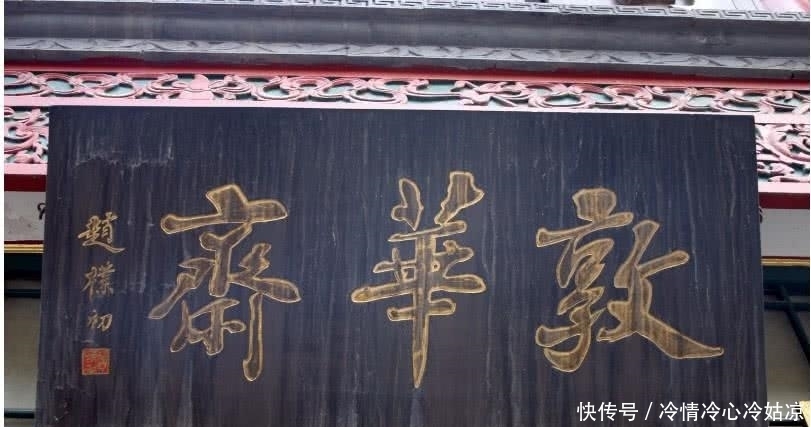 敦華齋
趙樸初
快传号 / 冷情冷心冷姑凉